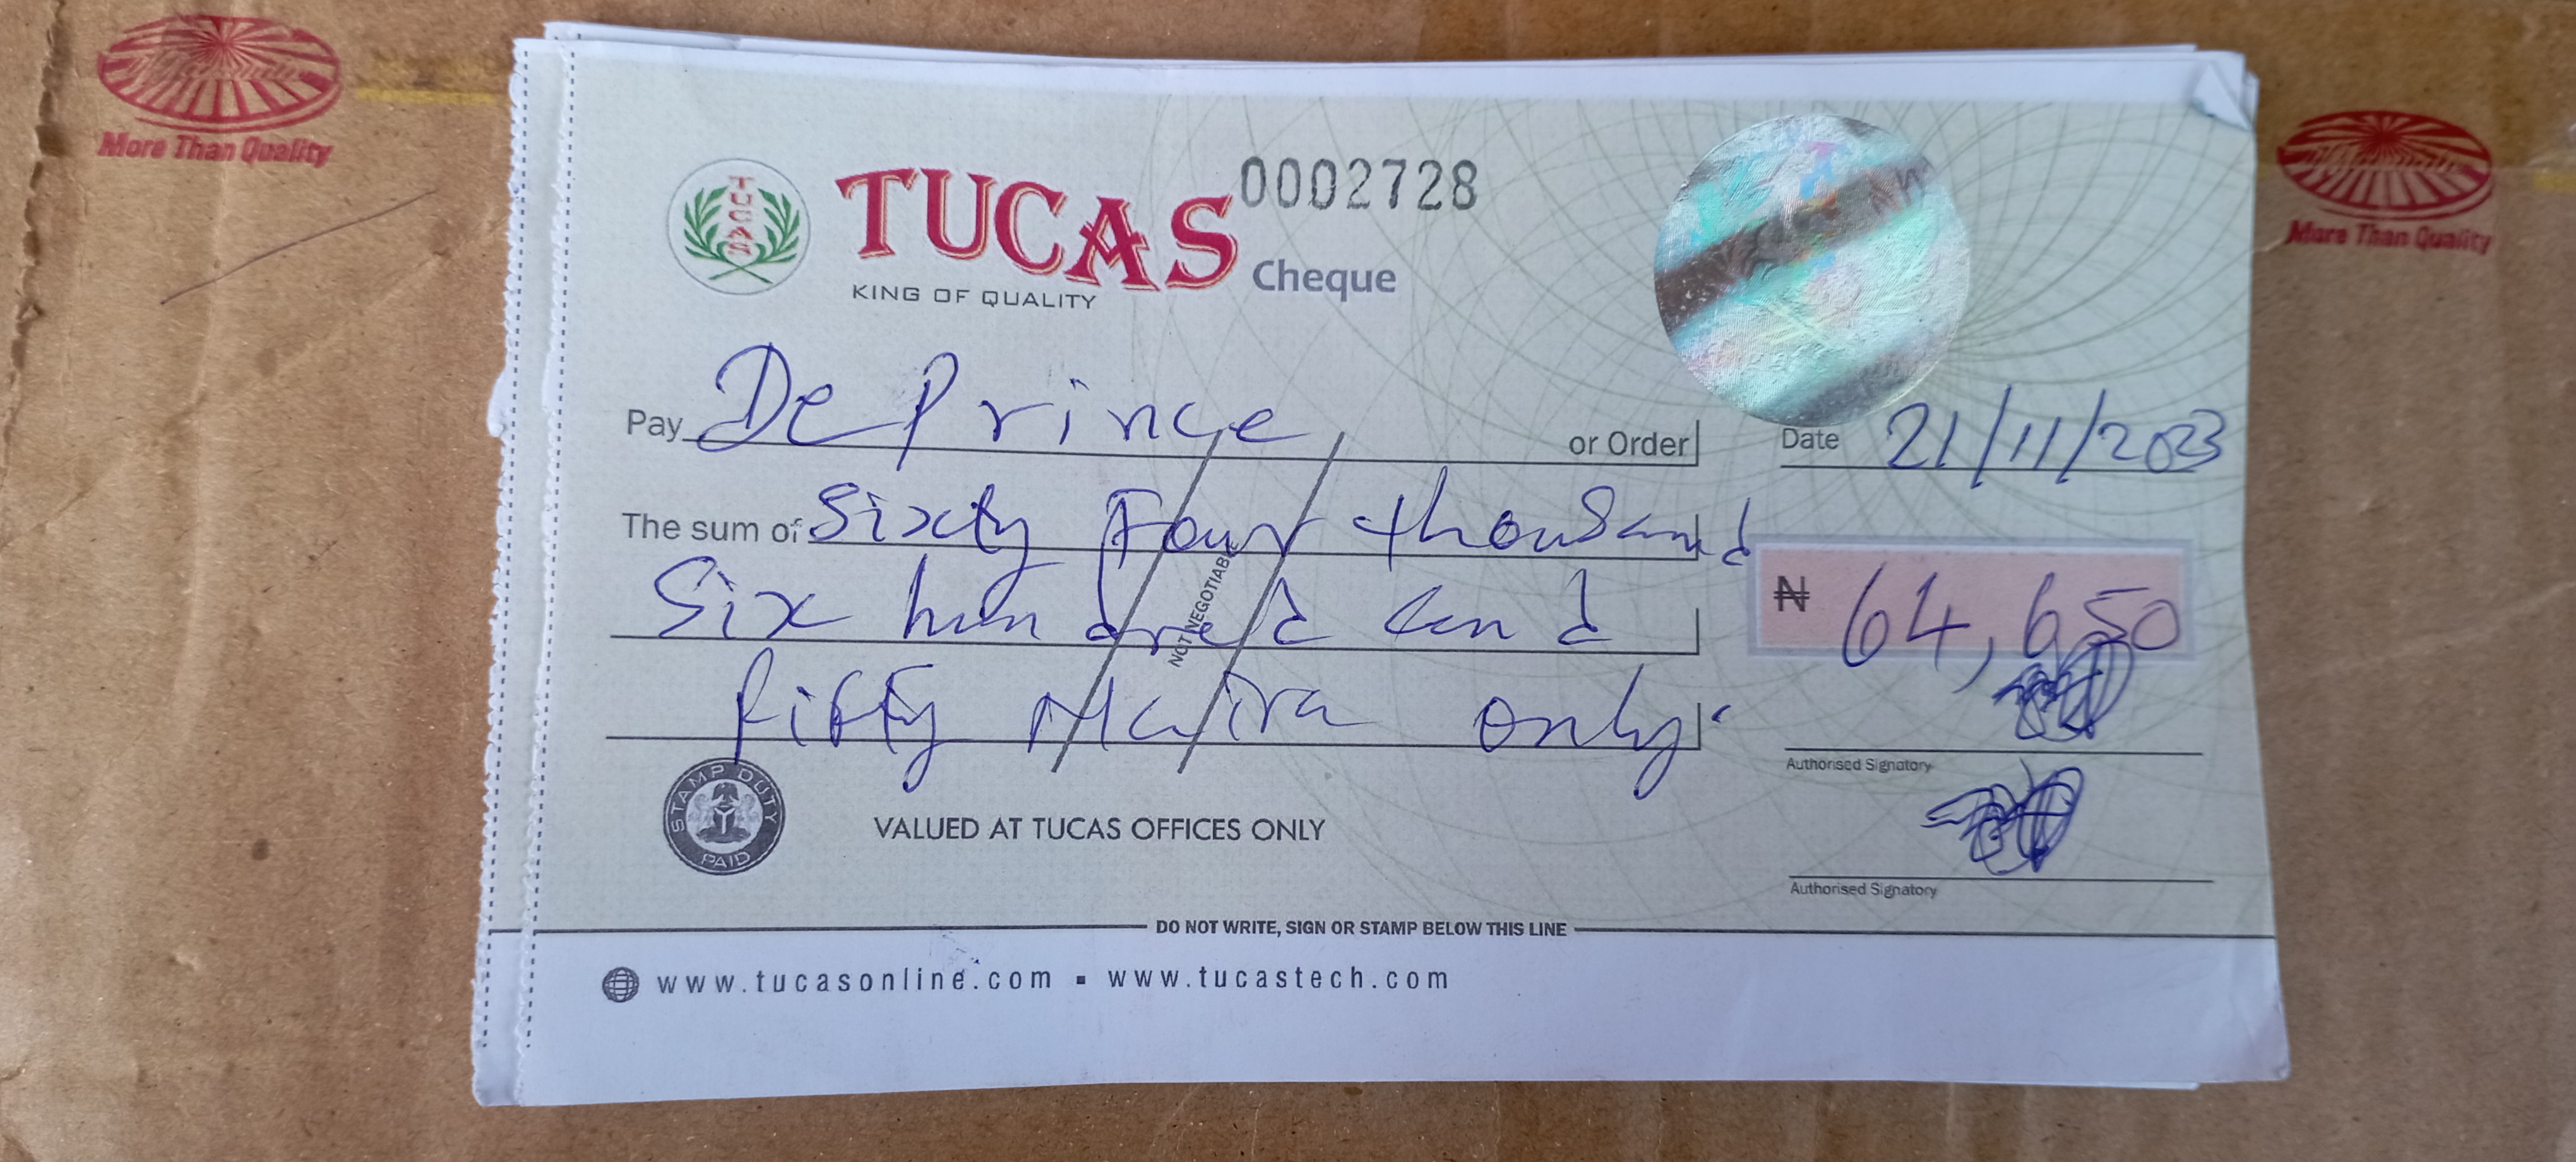 More Than Quality
More Than Quality
TUCAS
TUCAS 0002728
KING OF QUALITY
Cheque
Pay De Prince or Order
Date 21/11/2023
The sum of Sixty Four thousand
Six hundred and
₦ 64,650
fifty Naira only
NOT NEGOTIABLE
Authorised Signatory
STAMP DUTY
PAID
VALUED AT TUCAS OFFICES ONLY
Authorised Signatory
DO NOT WRITE, SIGN OR STAMP BELOW THIS LINE
www.tucasonline.com ▪ www.tucastech.com